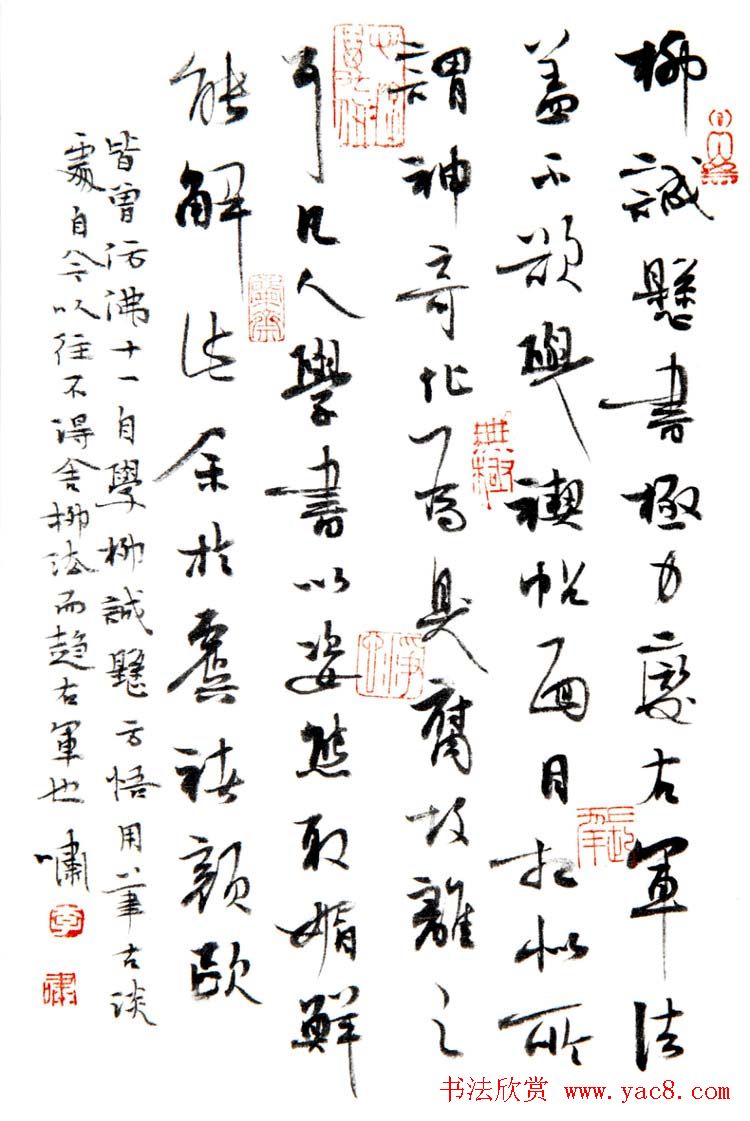 柳誠懸書極力變右軍法
蓋不欲與禊帖面目相似所
謂神奇化為臭腐故離之
耳凡人學書以姿態取媚鮮
能解此余於虞褚顏歐
皆曾仿佛十一自學柳誠懸方悟用筆古淡
處自今以往不得舍柳法而趨右軍也 嘯
书法欣赏 www.yac8.com